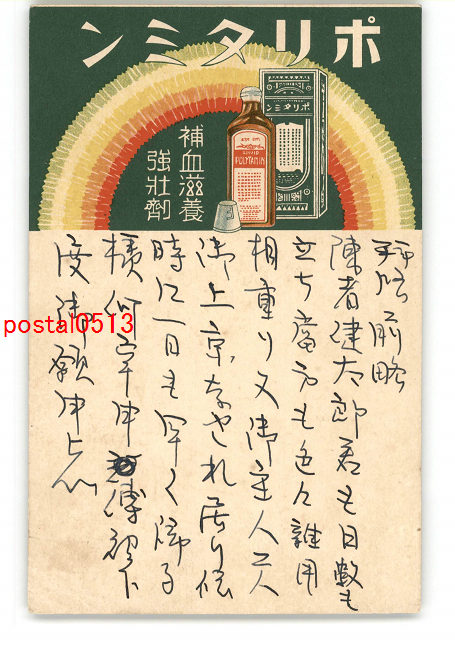 ポリタミン
補血滋養
強壮劑
ポリタミン
LIQUID
POLYTAMIN
拝啓 前略
陳者健太郎君も日数も
立ち當方も色々雑用
相重り又御主人二人
御上京なされ居り候
時に一日も早く帰る
様何卒申傳被下
度御願申上候
postal0513